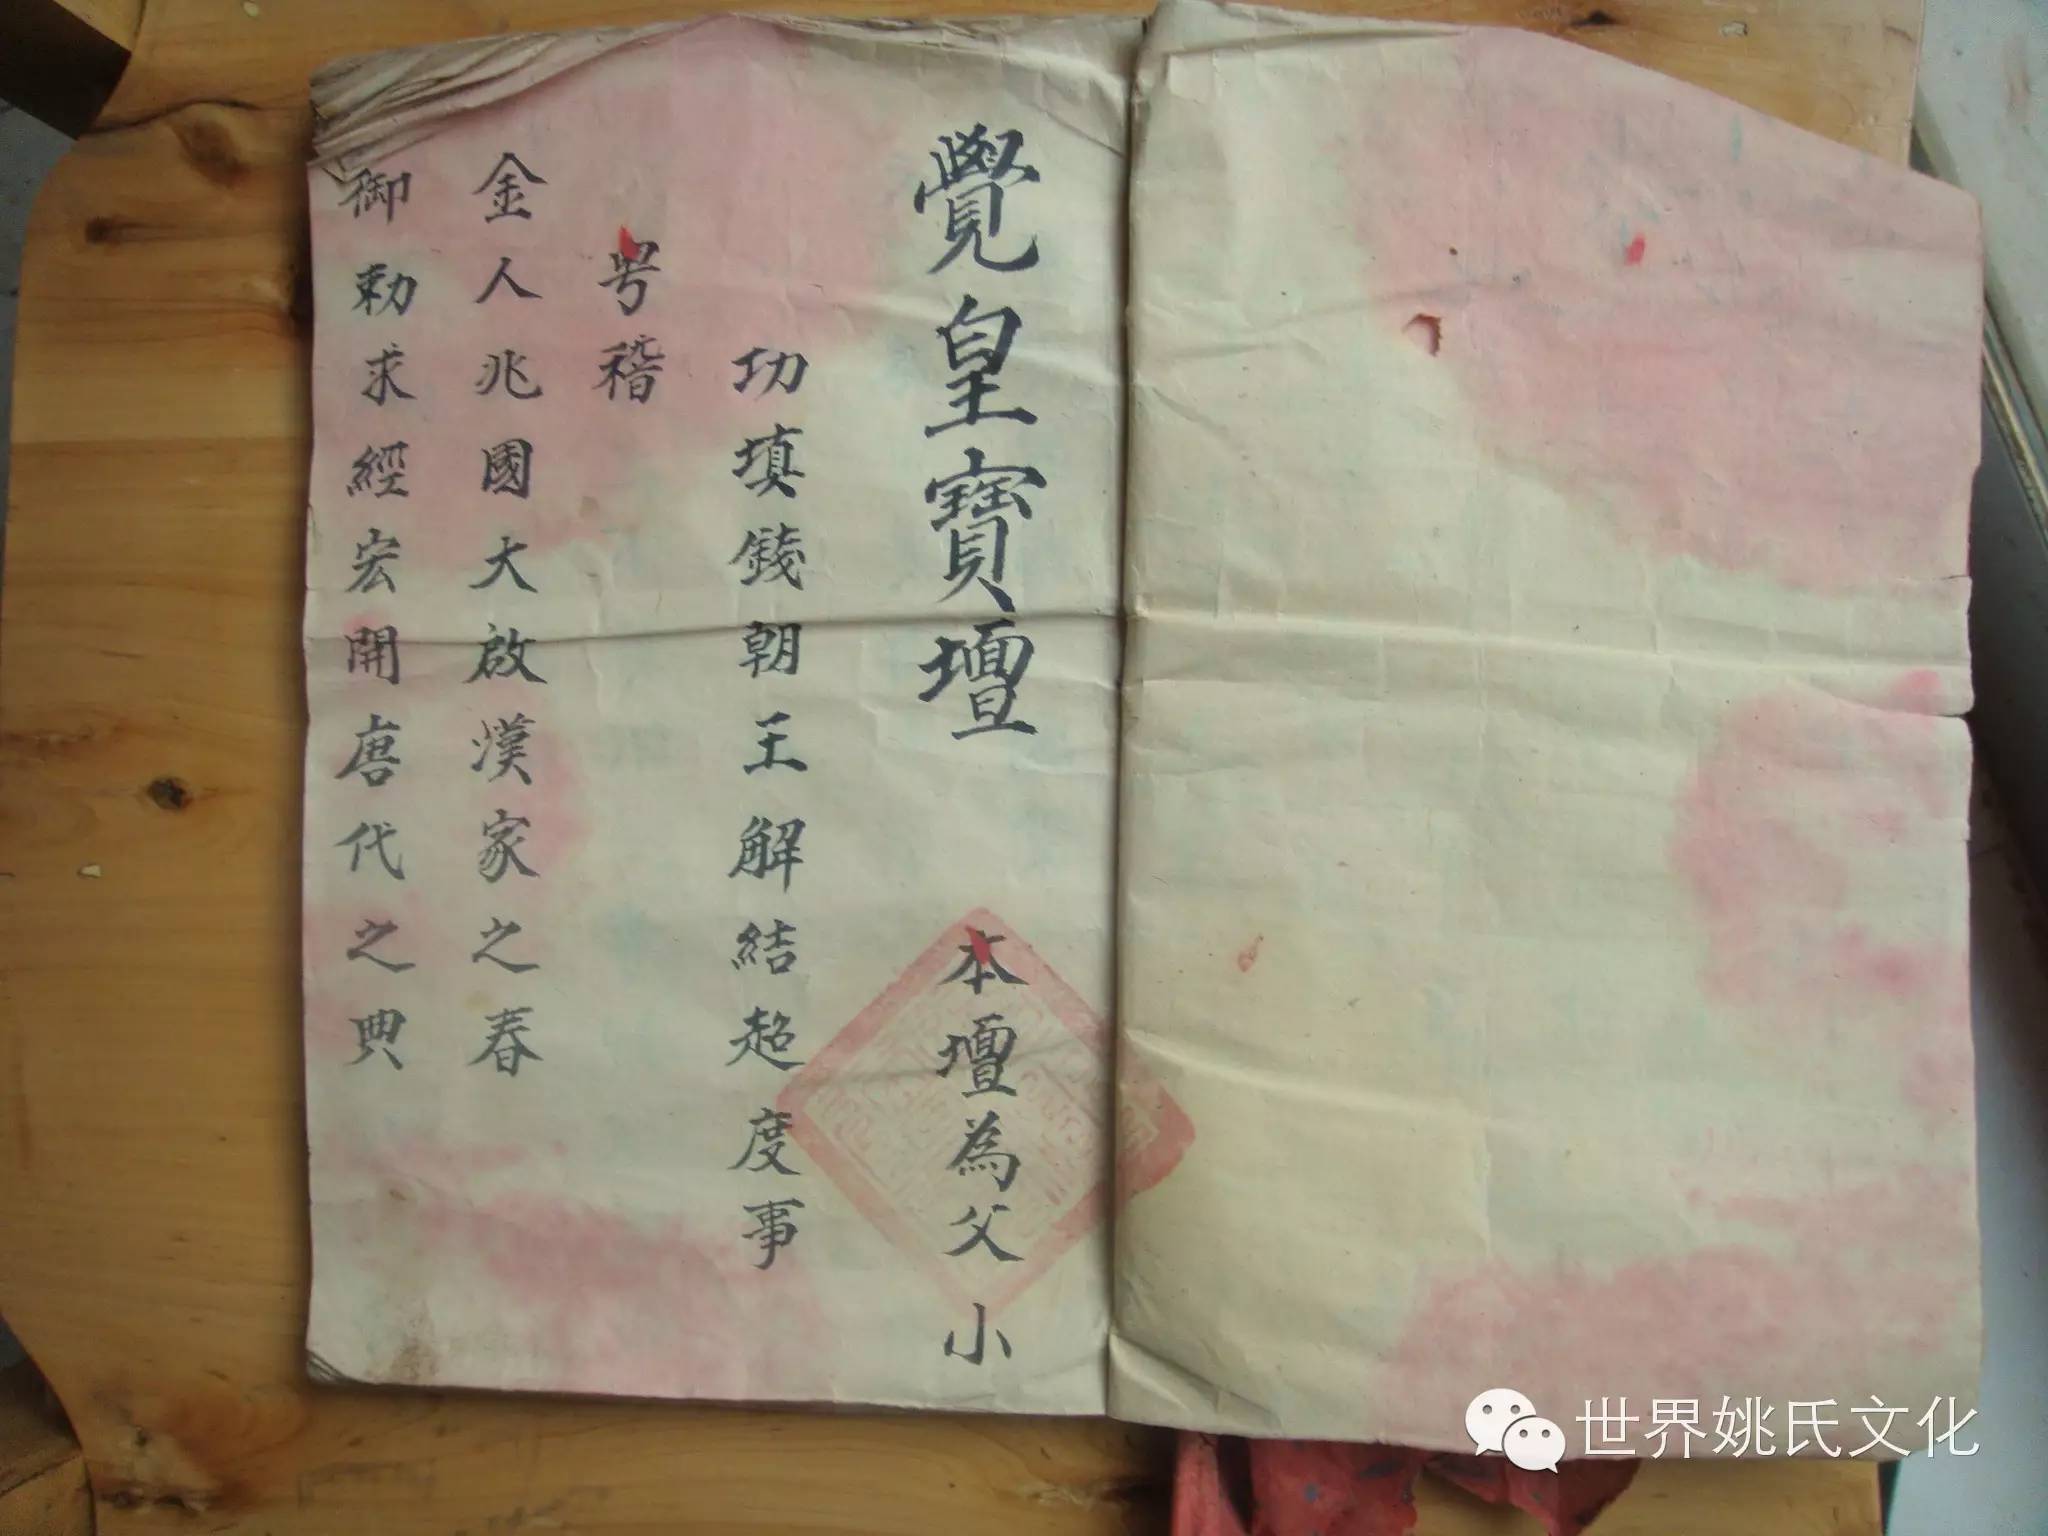 覺皇寶壇 本壇為父 小
功填錢朝王解結超度事
号稽
金人兆國大啟漢家之春
御勅求經宏開唐代之典
世界姚氏文化